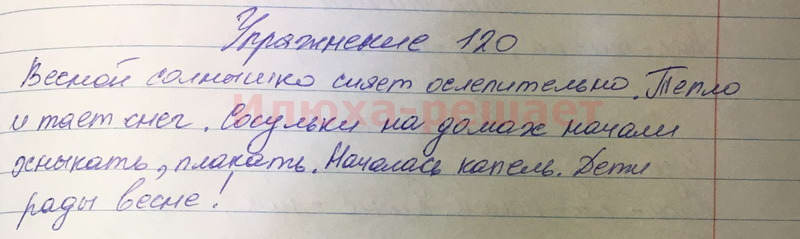 Упражнение 120
Весной солнышко сияет ослепительно. Тепло
и тает снег. Сосульки на домах начали
хныкать, плакать. Началась капель. Дети
рады весне!
Илюха-решает